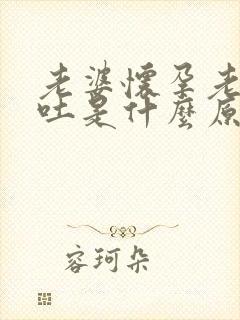 老婆懷孕老
吐是什麼原
容珂朵